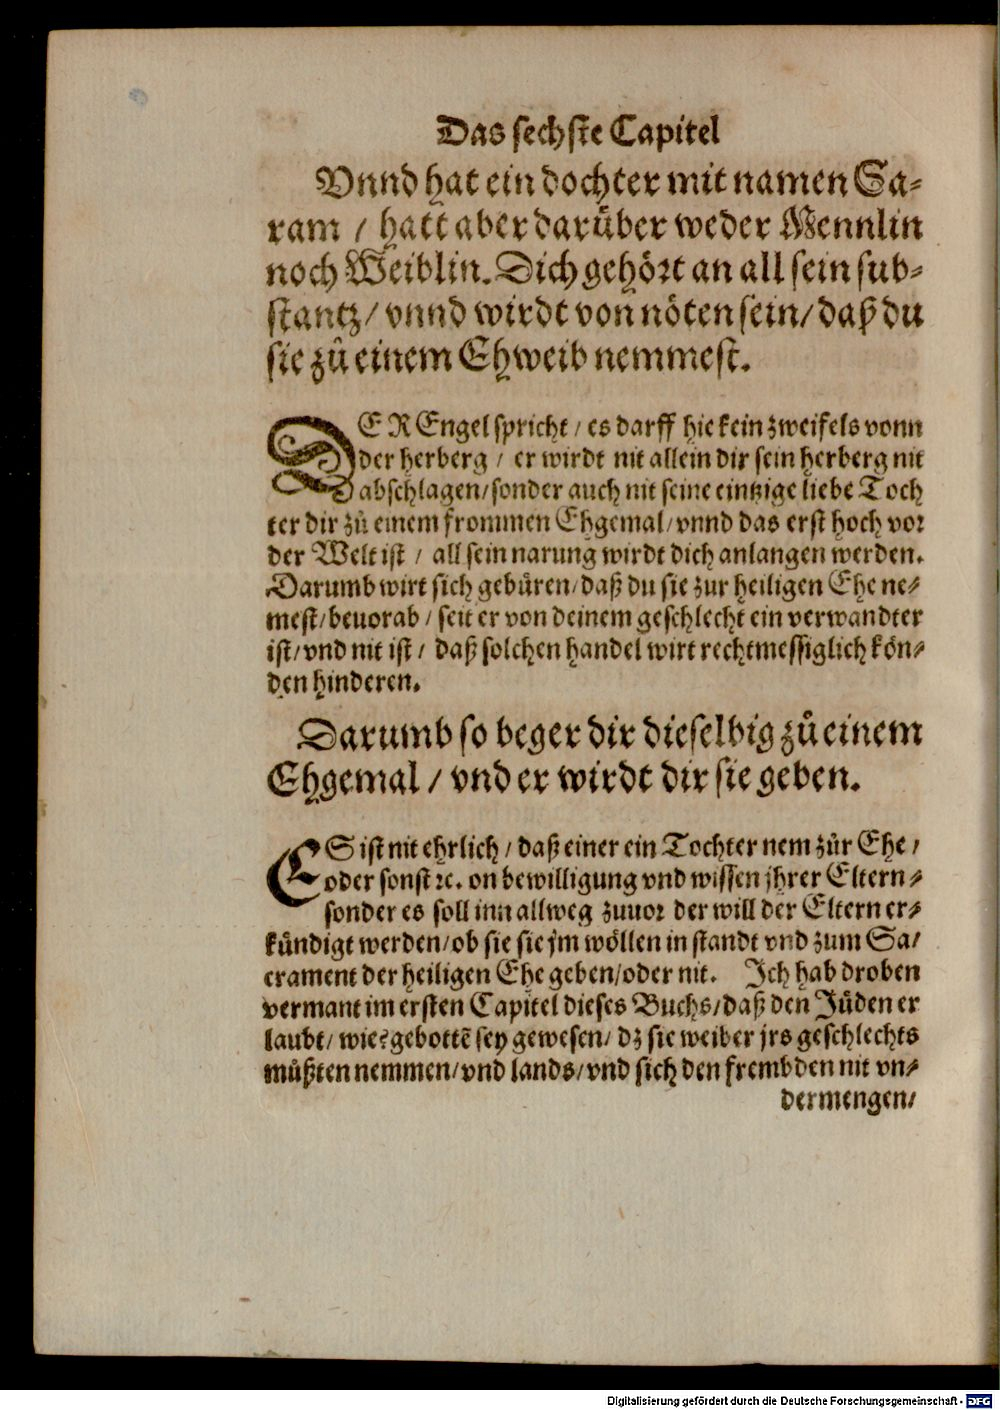 Das sechste Capitel
Vnnd hat ein dochter mit namen Sa-
ram / hatt aber darüber weder Mennlin
noch Weiblin. Dich gehört an all sein sub-
stantz / vnnd wirdt von nöten sein / daß du
sie zů einem Ehweib nemmest.
DER Engel spricht / es darff hie kein zweifels vonn
der herberg / er wirdt nit allein dir sein herberg nit
abschlagen / sonder auch nit seine eintzige liebe Toch
ter dir zů einem frommen Ehgemal / vnnd das erst hoch vor
der Welt ist / all sein narung wirdt dich anlangen werden.
Darumb wirt sich gebüren / daß du sie zur heiligen Ehe ne-
mest / beuorab / seit er von deinem geschlecht ein verwandter
ist / vnd nit ist / daß solchen handel wirt rechtmessiglich kön-
den hinderen.
Darumb so beger dir dieselbig zů einem
Ehgemal / vnd er wirdt dir sie geben.
ES ist nit ehrlich / daß einer ein Tochter nem zůr Ehe /
oder sonst ꝛc. on bewilligung vnd wissen jhrer Eltern-
sonder es soll inn allweg zuuor der will der Eltern er-
kündigt werden / ob sie sie jm wöllen in standt vnd zum Sa/
crament der heiligen Ehe geben / oder nit. Ich hab droben
vermant im ersten Capitel dieses Buchs / daß den Jüden er
laubt / wie? gebottē sey gewesen / dz sie weiber jrs geschlechts
můßten nemmen / vnd lands / vnd sich den frembden nit vn-
dermengen /
Digitalisierung gefördert durch die Deutsche Forschungsgemeinschaft - DFG